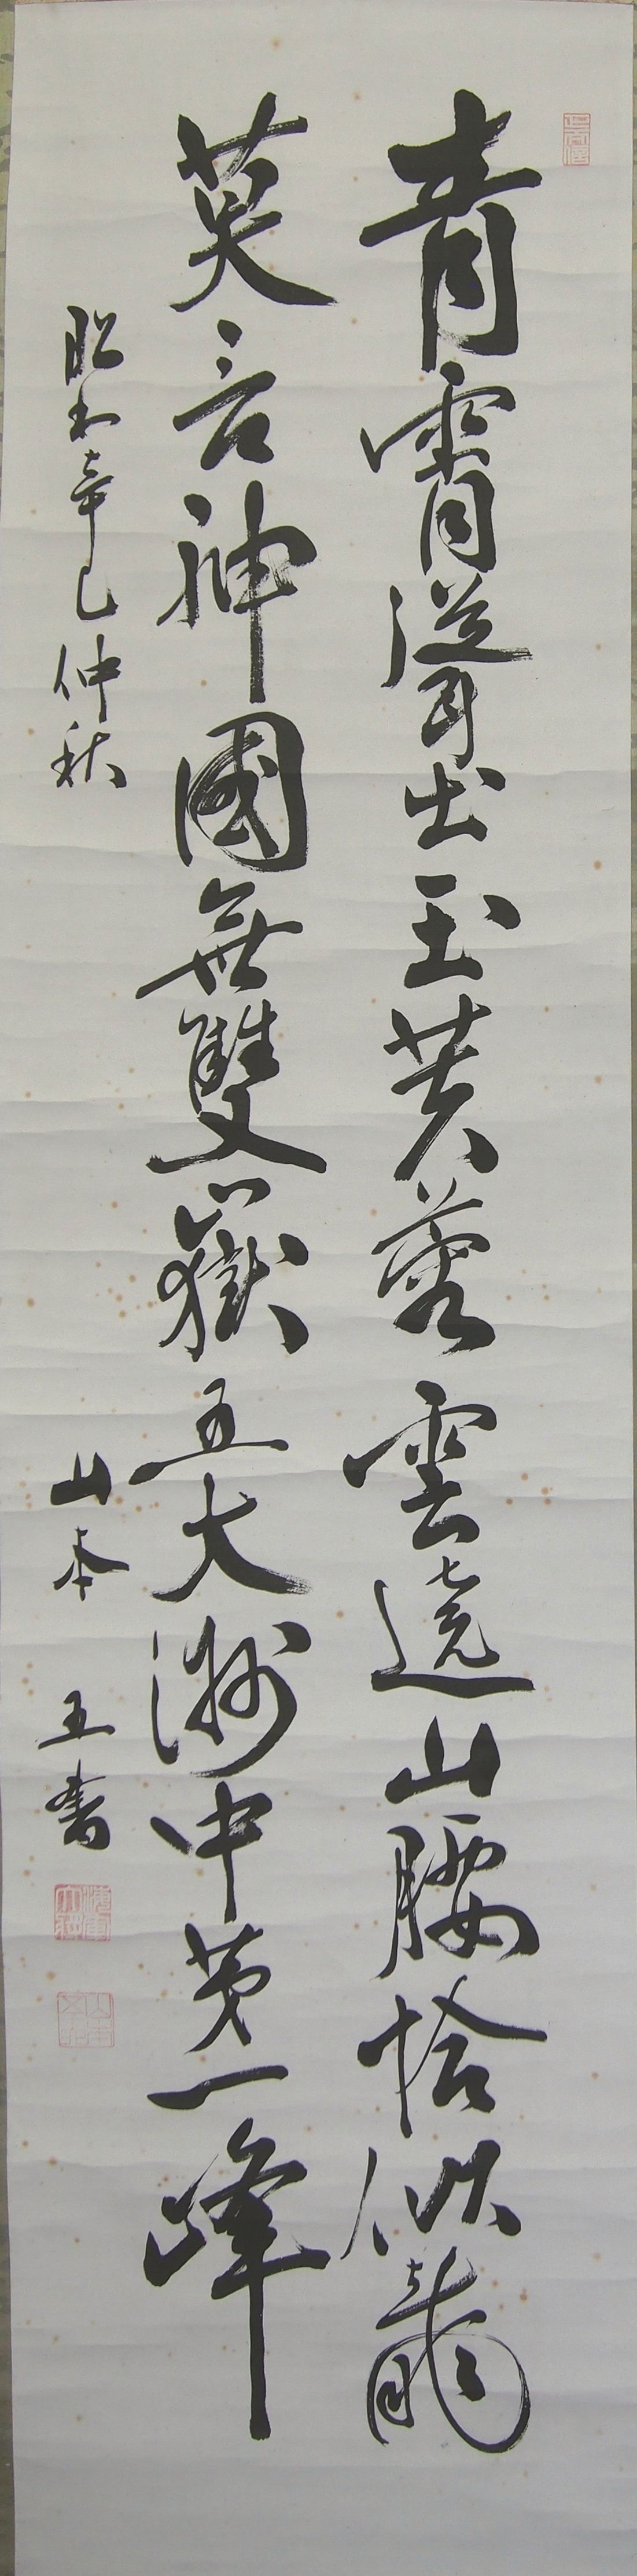 青霄聳出玉芙蓉雲遶山腰恰似龍
莫言神國無雙嶽五大洲中第一峰
昭和辛巳仲秋
山本 五書